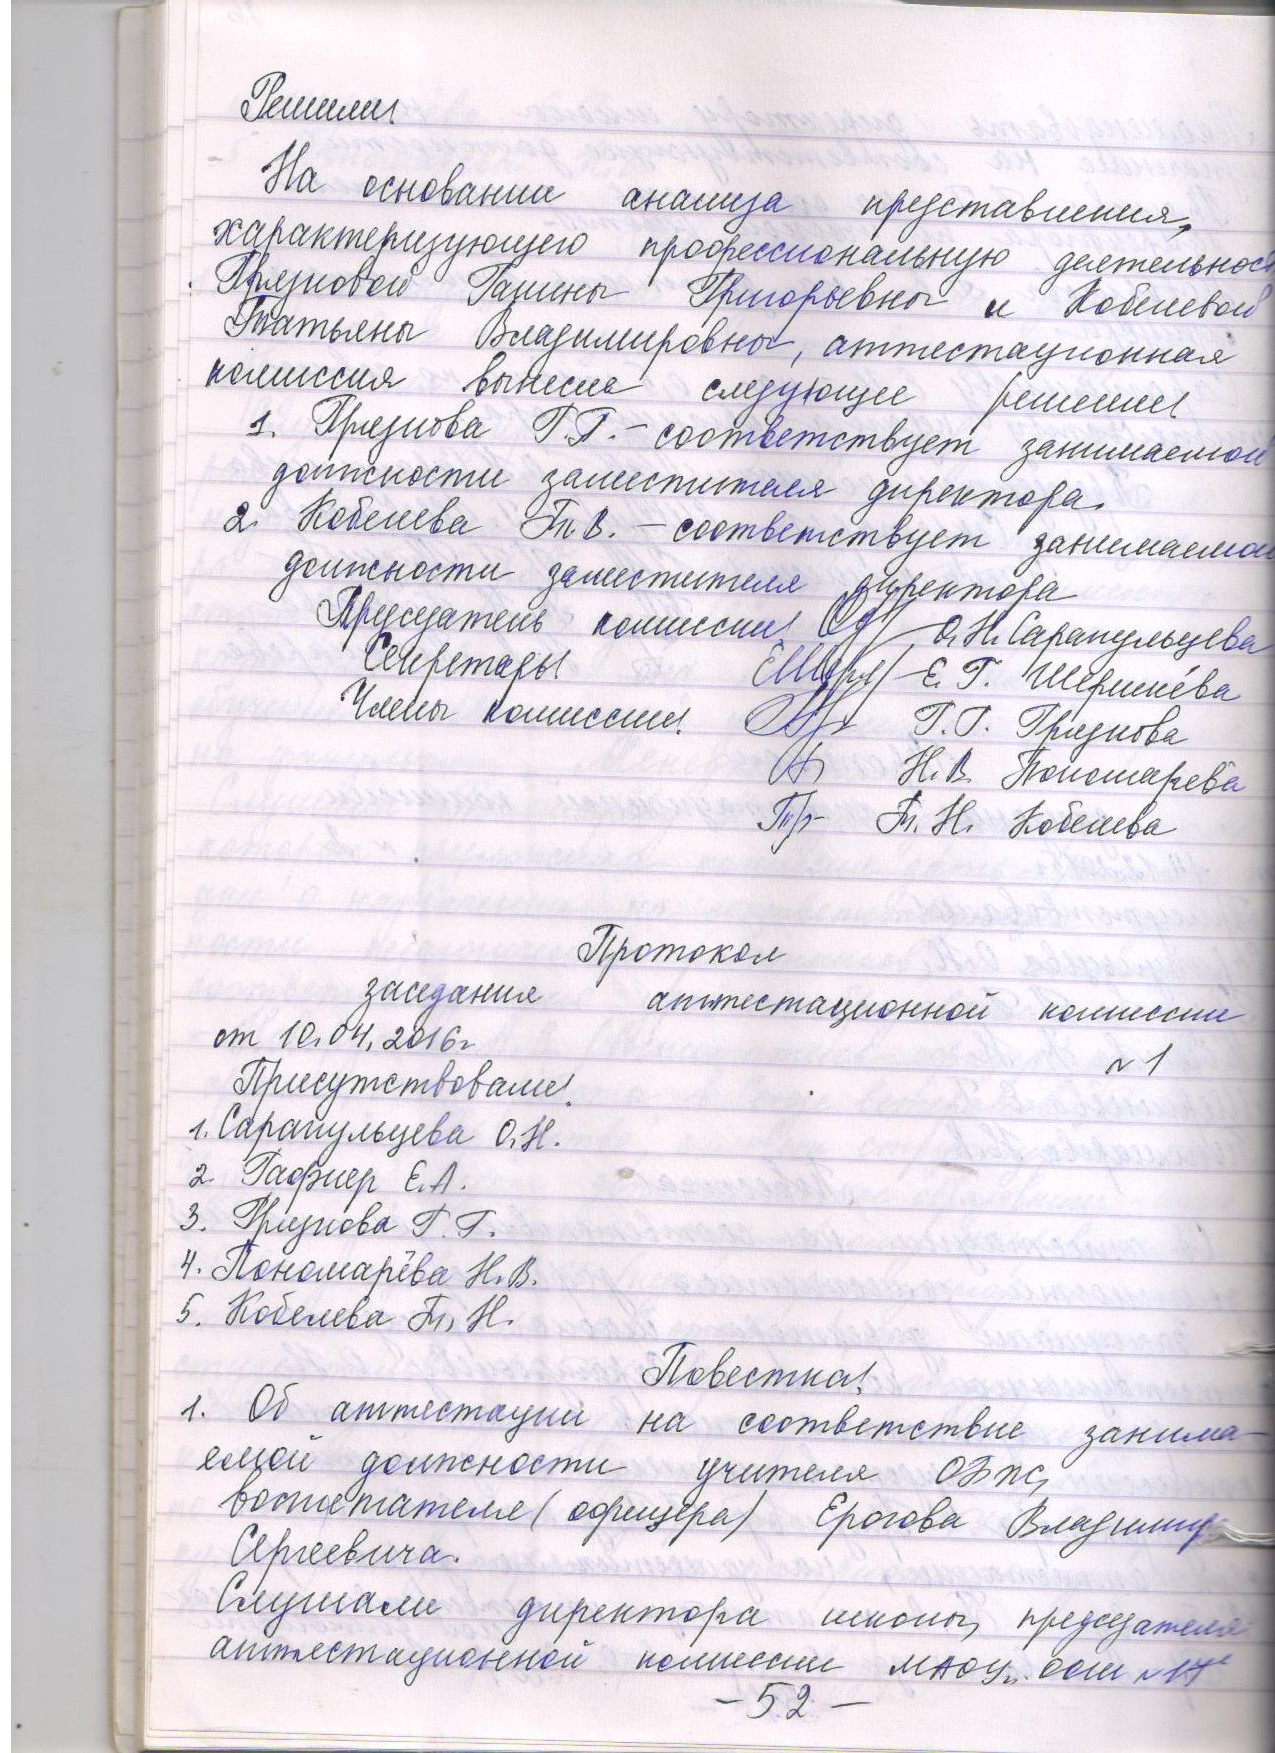 Решили:
На основании анализа представления,
характеризующего профессиональную деятельность
Грязновой Галины Григорьевны и Кобелевой
Татьяны Владимировны, аттестационная
комиссия вынесла следующее решение:
1. Грязнова Г.Г. – соответствует занимаемой
должности заместителя директора.
2. Кобелева Т.В. – соответствует занимаемой
должности заместителя директора
Председатель комиссии: О.Н. Сарапульцева
Секретарь: Е.Г. Шершнёва
Члены комиссии: Г.Г. Грязнова
Н.В. Пономарёва
Т.Н. Кобелева
Протокол
заседания аттестационной комиссии
от 10.04.2016г
№1
Присутствовали:
1. Сарапульцева О.Н.
2. Гафнер Е.А.
3. Грязнова Г.Г.
4. Пономарёва Н.В.
5. Кобелева Т.Н.
Повестка:
1. Об аттестации на соответствие занима-
емой должности учителя ОВПС,
воспитателя (офицера) Ерогова Владимира
Сергеевича.
Слушали директора школы, председателя
аттестационной комиссии МАОУ ООШ №17
– 52 –